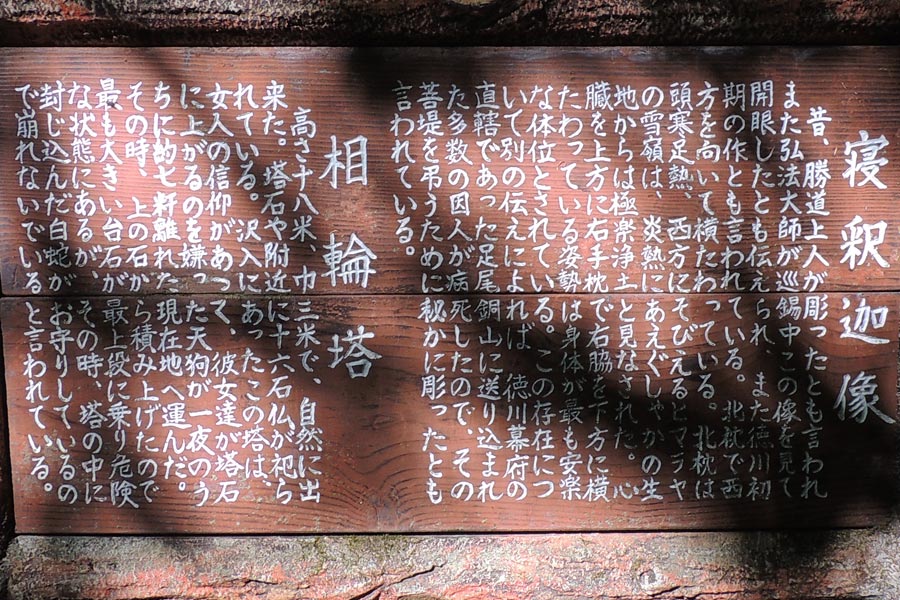 寝釈迦像
昔、勝道上人が彫ったとも言われ
また弘法大師が巡錫中この像を見て
開眼したとも伝えられ、また徳川初
期の作とも言われている。北枕で西
方を向いて横たわっている。北枕は
頭寒足熱、西方にそびえるヒマラヤ
の雪嶺は、炎熱にあえぐしゃかの生
地からは極楽浄土と見なされた。心
臓を上方に右手枕で右脇を下方に横
たわっている姿勢は身体が最も安楽
な体位とされている。この存在につ
いて別の伝えによれば、徳川幕府の
直轄であった足尾銅山に送り込まれ
た多数の囚人が病死したので、その
菩提を弔うために秘かに彫ったとも
言われている。
相輪塔
高さ十八米、巾三米で、自然に出
来た。塔石や附近に十六石仏が祀ら
れている。沢入にあったこの塔は、
女人の信仰があって、彼女達が塔石
に上がるのを嫌った天狗が一夜のう
ちに約七粁離れた現在地へ運んだ。
その時、上の石から積み上げたので
最も大きい台石が最上段に乗り危険
な状態にあるが、その時、塔の中に
封じ込んだ白蛇がお守りしているの
で崩れないでいると言われている。